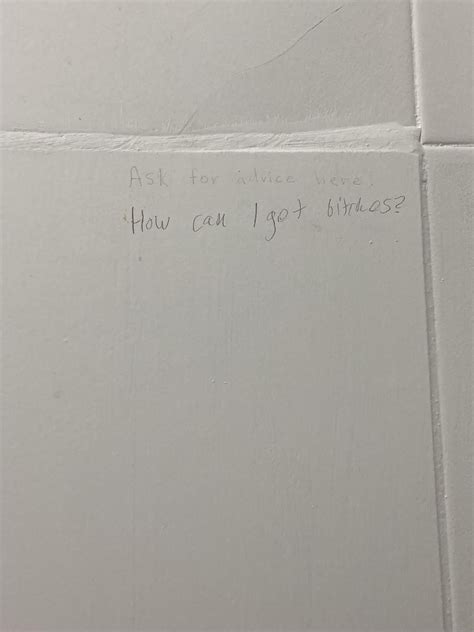 Ask for advice here!
How can I get bitches?